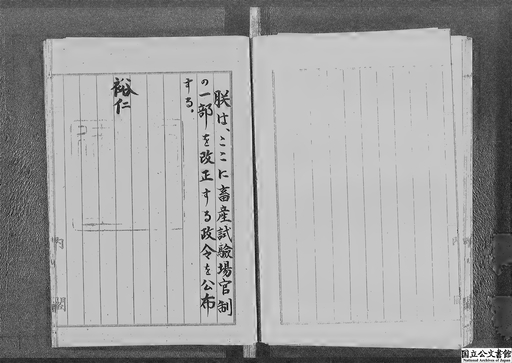 朕は、ここに畜産試験場官制
の一部を改正する政令を公布
する。
裕仁
内閣
内閣
国立公文書館
National Archives of Japan